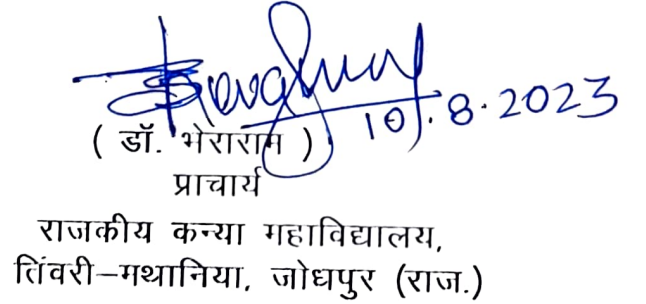 10.8.2023
( डॉ. भेराराम )
प्राचार्य
राजकीय कन्या महाविद्यालय,
तिंवरी–मथानिया, जोधपुर (राज.)